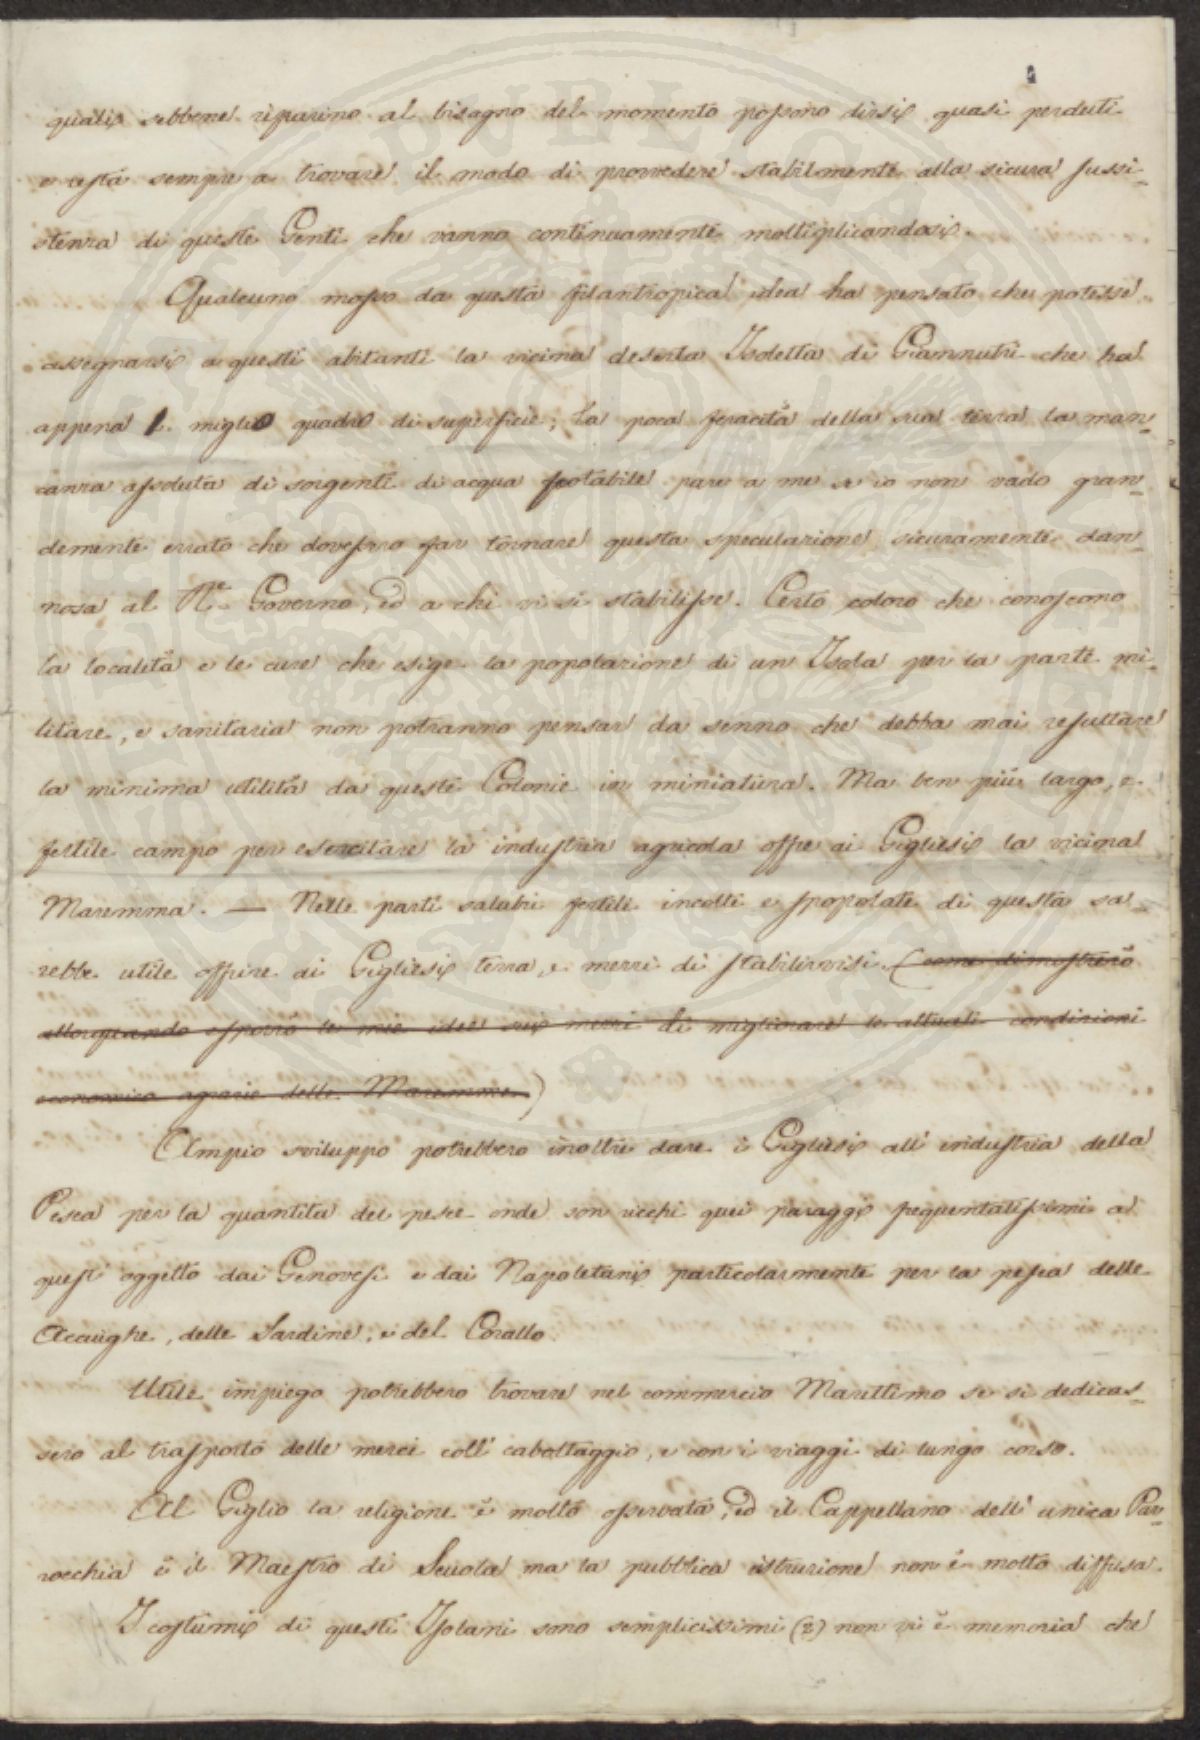 quali sebbene riparino al bisogno del momento possono dirsi quasi perduti
e resta sempre a trovare il modo di provvedere stabilmente alla sicura sussi-
stenza di queste Genti che vanno continuamente moltiplicandosi.
Qualcuno mosso da questa filantropica idea ha pensato che potesse
assegnarsi a questi abitanti la vicina deserta Isoletta di Giannutri che ha
appena 1. miglio quadro di superficie; la poca feracità della sua terra la man-
canza assoluta di sorgenti di acqua potabile pare a me se io non vado gran-
demente errato che dovessero far tornare questa speculazione sicuramente dan-
nosa al Re. Governo, ed a chi vi si stabilisse. Certo coloro che conoscono
la località e le cure che esige la popolazione di un Isola per la parte mi-
litare, e sanitaria non potranno pensar da senno che debba mai resultare
la minima utilità da queste Colonie in miniatura. Ma ben più largo, e
fertile campo per esercitare la industria agricola offre ai Gigliesi la vicina
Maremma. — Nelle parti salubri fertili incolti e spopolate di questa sa-
rebbe utile offrire ai Gigliesi terra, e mezzi di stabilirvisi (come dimostrerò
allorquando esporrò le mie idee sui mezzi di migliorare le attuali condizioni
economico agrarie delle Maremme.)
Ampio sviluppo potrebbero inoltre dare i Gigliesi all' industria della
Pesca per la quantità del pesce onde son ricchi quei paraggi frequentatissimi a
quest' oggetto dai Genovesi e dai Napoletani particolarmente per la pesca delle
Acciughe, delle Sardine, e del Corallo.
Utile impiego potrebbero trovare nel commercio Marittimo se si dedicas-
sero al trasporto delle merci coll' cabottaggio, e con i viaggi di lungo corso.
Al Giglio la religione è molto osservata, ed il Cappellano dell' unica Par-
rocchia è il Maestro di Scuola ma la pubblica istruzione non è molto diffusa.
I costumi di questi Isolani sono semplicissimi (2) non vi è memoria che